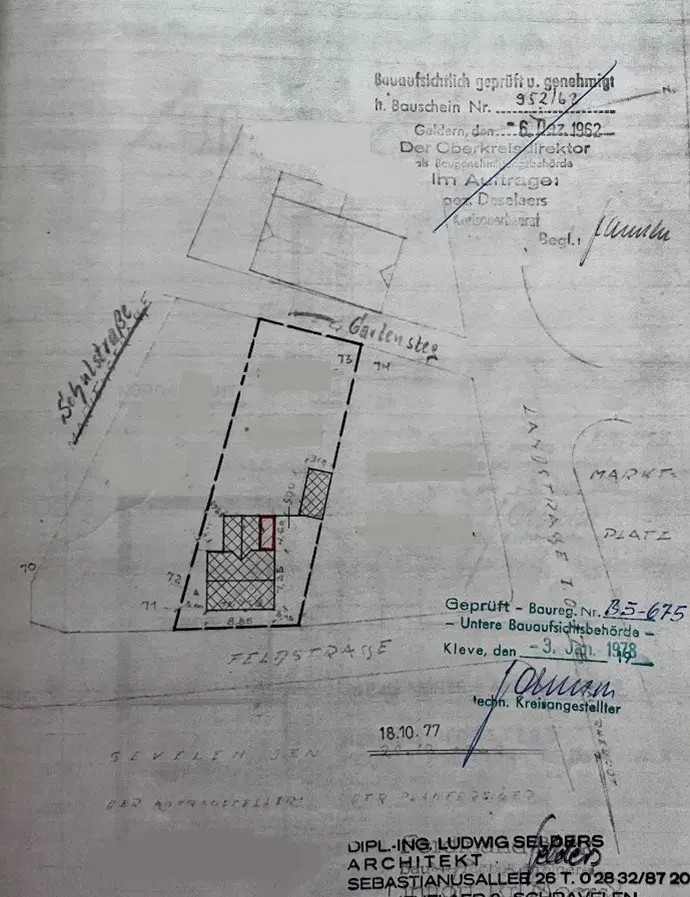 Bauaufsichtlich geprüft u. genehmigt
lt. Bauschein Nr. 952/62
Geldern, den - 6. Dez. 1962
Der Oberkreisdirektor
als Baugenehmigungsbehörde
Im Auftrage:
gez. Deselaers
Kreisoberbaurat
Begl.:
N
Schulstraße
Gartensteg
73
74
LANDSTRASSE
MARKT-
PLATZ
3.0
5.00
4.60
7.25
70
72
71
3.00
8.86
FELDSTRASSE
Geprüft - Baureg. Nr. B5-675
- Untere Bauaufsichtsbehörde -
Kleve, den - 3. Jan. 1978
19
techn. Kreisangestellter
18.10.77
SEVELEN DEN
DER ANTRAGSTELLER: DER PLANFERTIGER
DIPL.-ING. LUDWIG SELDERS
ARCHITEKT Selders
SEBASTIANUSALLEE 26 T. 0 28 32/87 20